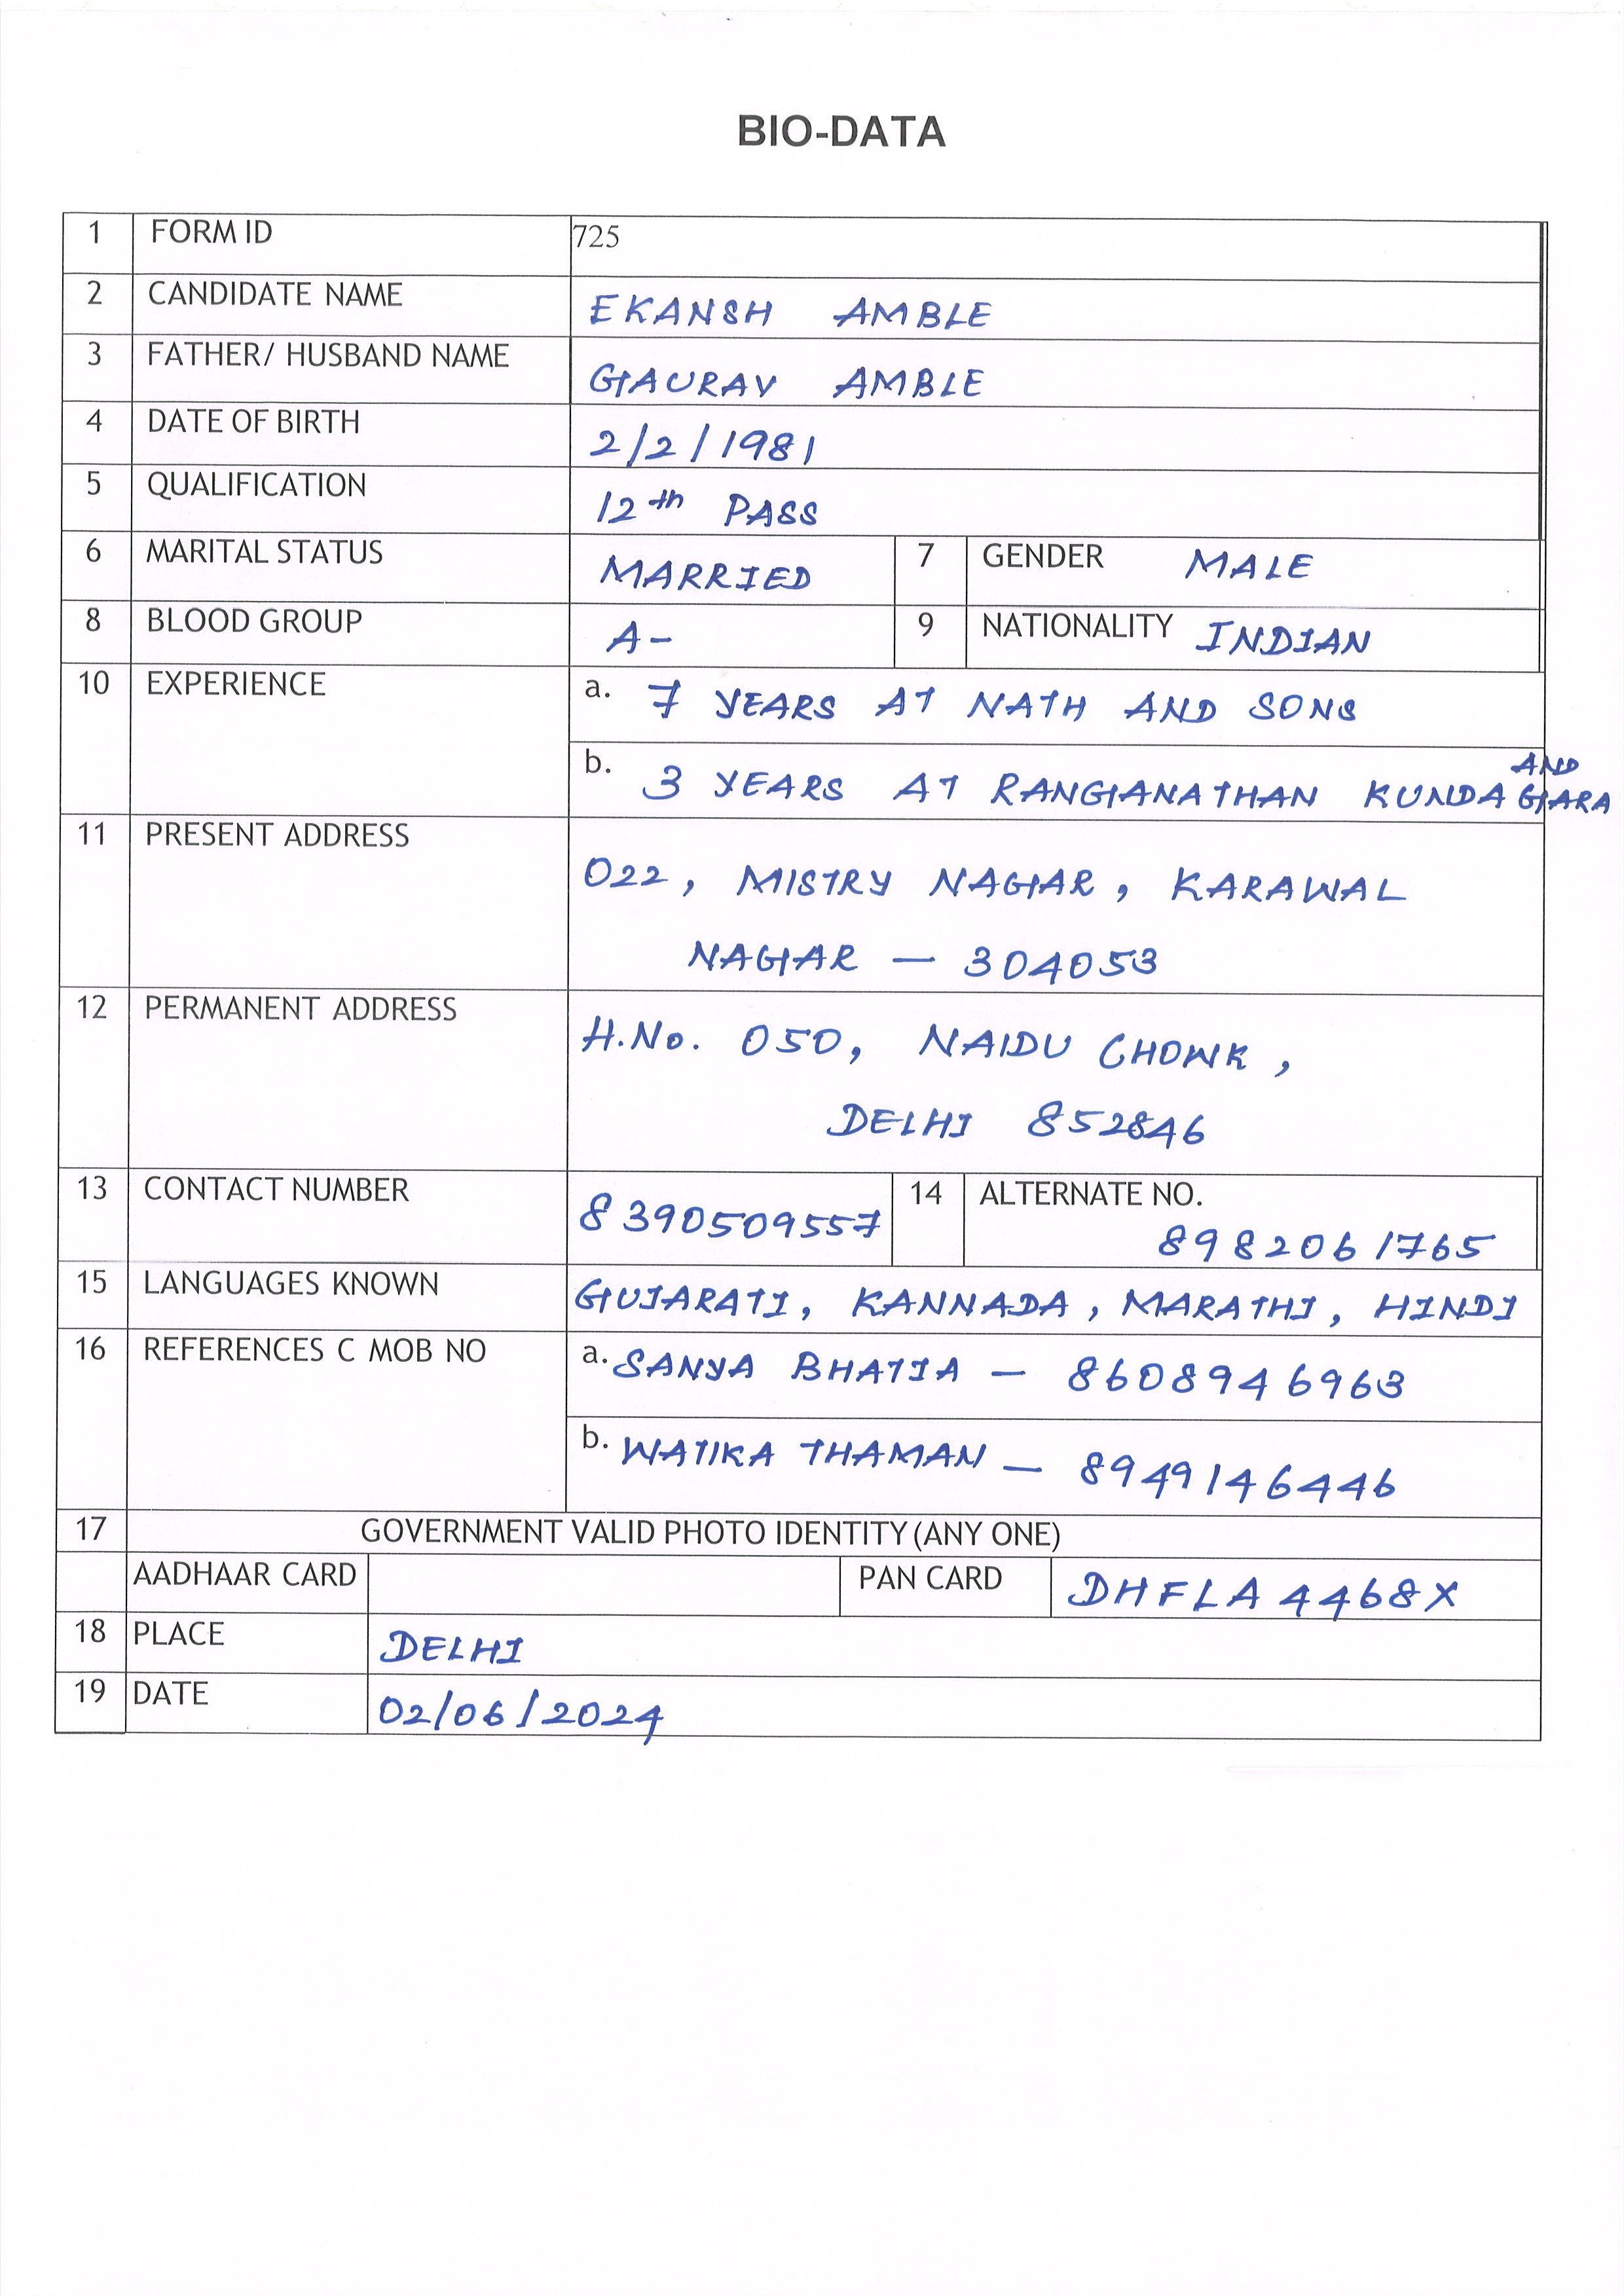 BIO-DATA
1 FORM ID 725
2 CANDIDATE NAME EKANSH AMBLE
3 FATHER/ HUSBAND NAME GAURAV AMBLE
4 DATE OF BIRTH 2/2/1981
5 QUALIFICATION 12th PASS
6 MARITAL STATUS MARRIED 7 GENDER MALE
8 BLOOD GROUP A- 9 NATIONALITY INDIAN
10 EXPERIENCE a. 7 YEARS AT NATH AND SONS
b. 3 YEARS AT RANGANATHAN KUNDA AND GARA
11 PRESENT ADDRESS 022, MISTRY NAGAR, KARAWAL
NAGAR — 304053
12 PERMANENT ADDRESS H.No. 050, NAIDU CHOWK,
DELHI 852846
13 CONTACT NUMBER 8390509557 14 ALTERNATE NO.
8982061765
15 LANGUAGES KNOWN GUJARATI, KANNADA, MARATHI, HINDI
16 REFERENCES C MOB NO a. SANYA BHATIA — 8608946963
b. WATIKA THAMAN — 8949146446
17 GOVERNMENT VALID PHOTO IDENTITY (ANY ONE)
AADHAAR CARD PAN CARD DHFLA4468X
18 PLACE DELHI
19 DATE 02/06/2024